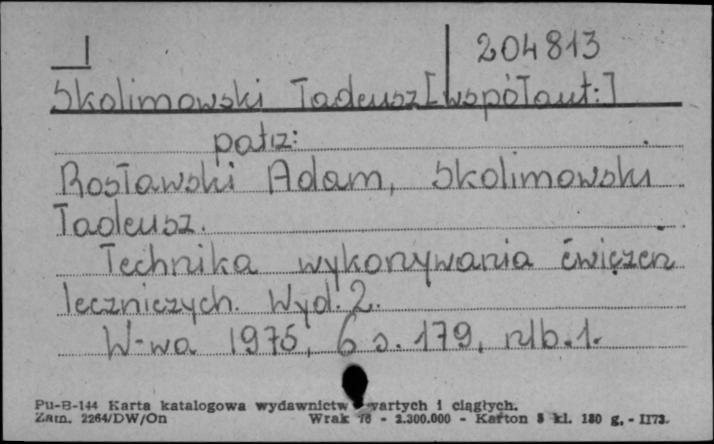 I 204813
Skolimowski Tadeusz [współaut:]
patrz:
Rosławski Adam, Skolimowski
Tadeusz.
Technika wykonywania ćwiczeń
leczniczych. Wyd. 2.
W-wa 1975, 6 s. 179, nlb. 1.
Pu-B-144 Karta katalogowa wydawnictw zwartych i ciągłych.
Zam. 2264/DW/On Wrak 76 - 2.300.000 - Karton 5 kl. 180 g. - II73.